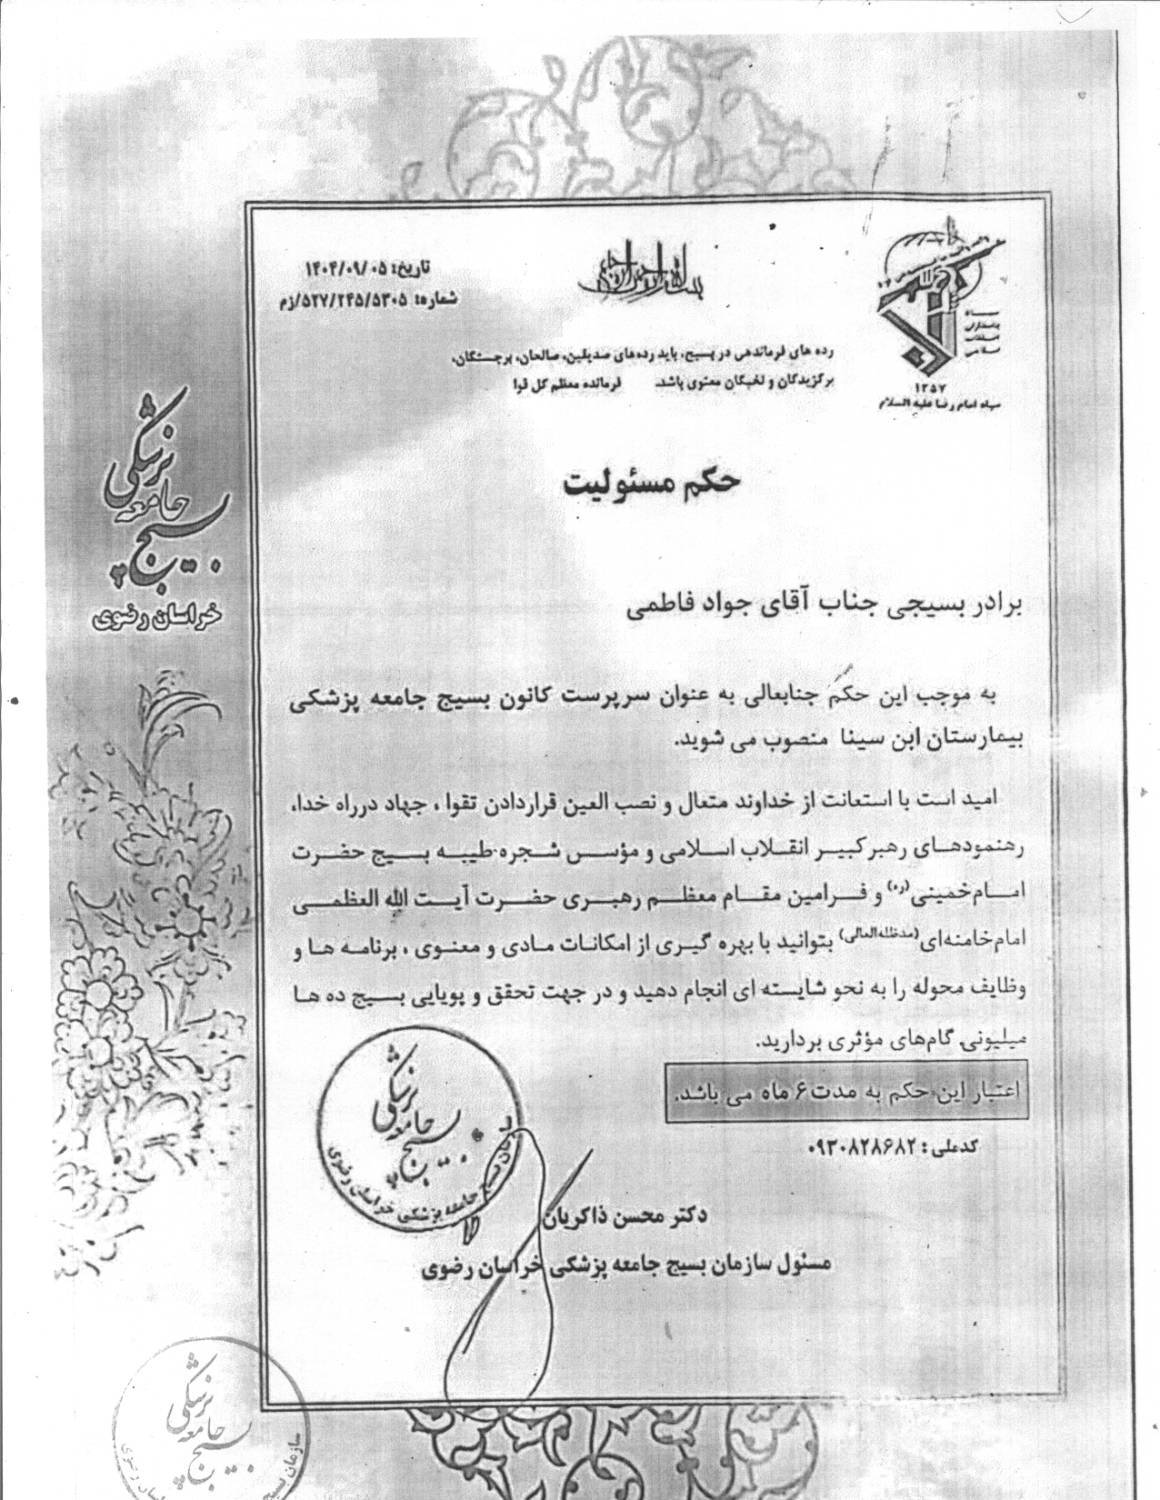 بسم الله الرحمن الرحیم
تاریخ: ۱۴۰۴/۰۹/۰۵
شماره: ۵۲۷/۲۴۵/۵۳۰۵/زم
سپاه
پاسداران
انقلاب
اسلامی
۱۳۵۷
سپاه امام رضا علیه السلام
رده های فرماندهی در بسیج، باید رده‌های صدیقین، صالحان، برجستگان،
برگزیدگان و نخبگان معنوی باشد. فرمانده معظم کل قوا
حکم مسئولیت
برادر بسیجی جناب آقای جواد فاطمی
به موجب این حکم جنابعالی به عنوان سرپرست کانون بسیج جامعه پزشکی
بیمارستان ابن سینا منصوب می شوید.
امید است با استعانت از خداوند متعال و نصب العین قراردادن تقوا ، جهاد درراه خدا،
رهنمودهای رهبر کبیر انقلاب اسلامی و مؤسس شجره طیبه بسیج حضرت
امام خمینی (ره) و فرامین مقام معظم رهبری حضرت آیت الله العظمی
امام خامنه‌ای (مدظله العالی) بتوانید با بهره گیری از امکانات مادی و معنوی ، برنامه ها و
وظایف محوله را به نحو شایسته ای انجام دهید و در جهت تحقق و پویایی بسیج ده ها
میلیونی گام‌های مؤثری بردارید.
اعتبار این حکم به مدت ۶ ماه می باشد.
کدملی : ۰۹۳۰۸۲۸۶۸۲
دکتر محسن ذاکریان
مسئول سازمان بسیج جامعه پزشکی خراسان رضوی
بسیج جامعه پزشکی
خراسان رضوی
بسیج جامعه پزشکی
سازمان بسیج جامعه پزشکی خراسان رضوی
بسیج جامعه پزشکی
سازمان بسیج